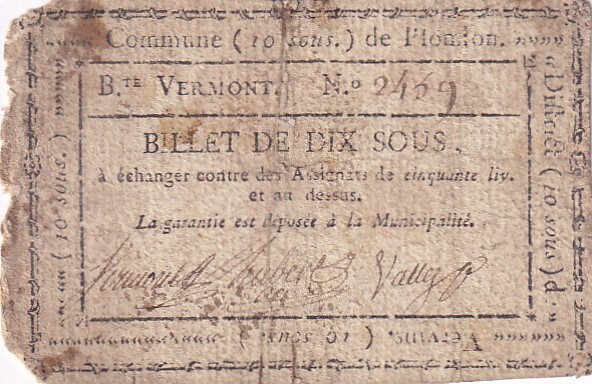 Commune (10 sous.) de Houſſon.
B.TE VERMONT. N.o 2469
BILLET DE DIX SOUS.
à échanger contre des Assignats de cinquante liv.
et au dessus.
La garantie est déposée à la Municipalité.
Vermont Hubert Vallez
District (10 sous) d.
Vervins. (10 sous.)
(10 sous.)